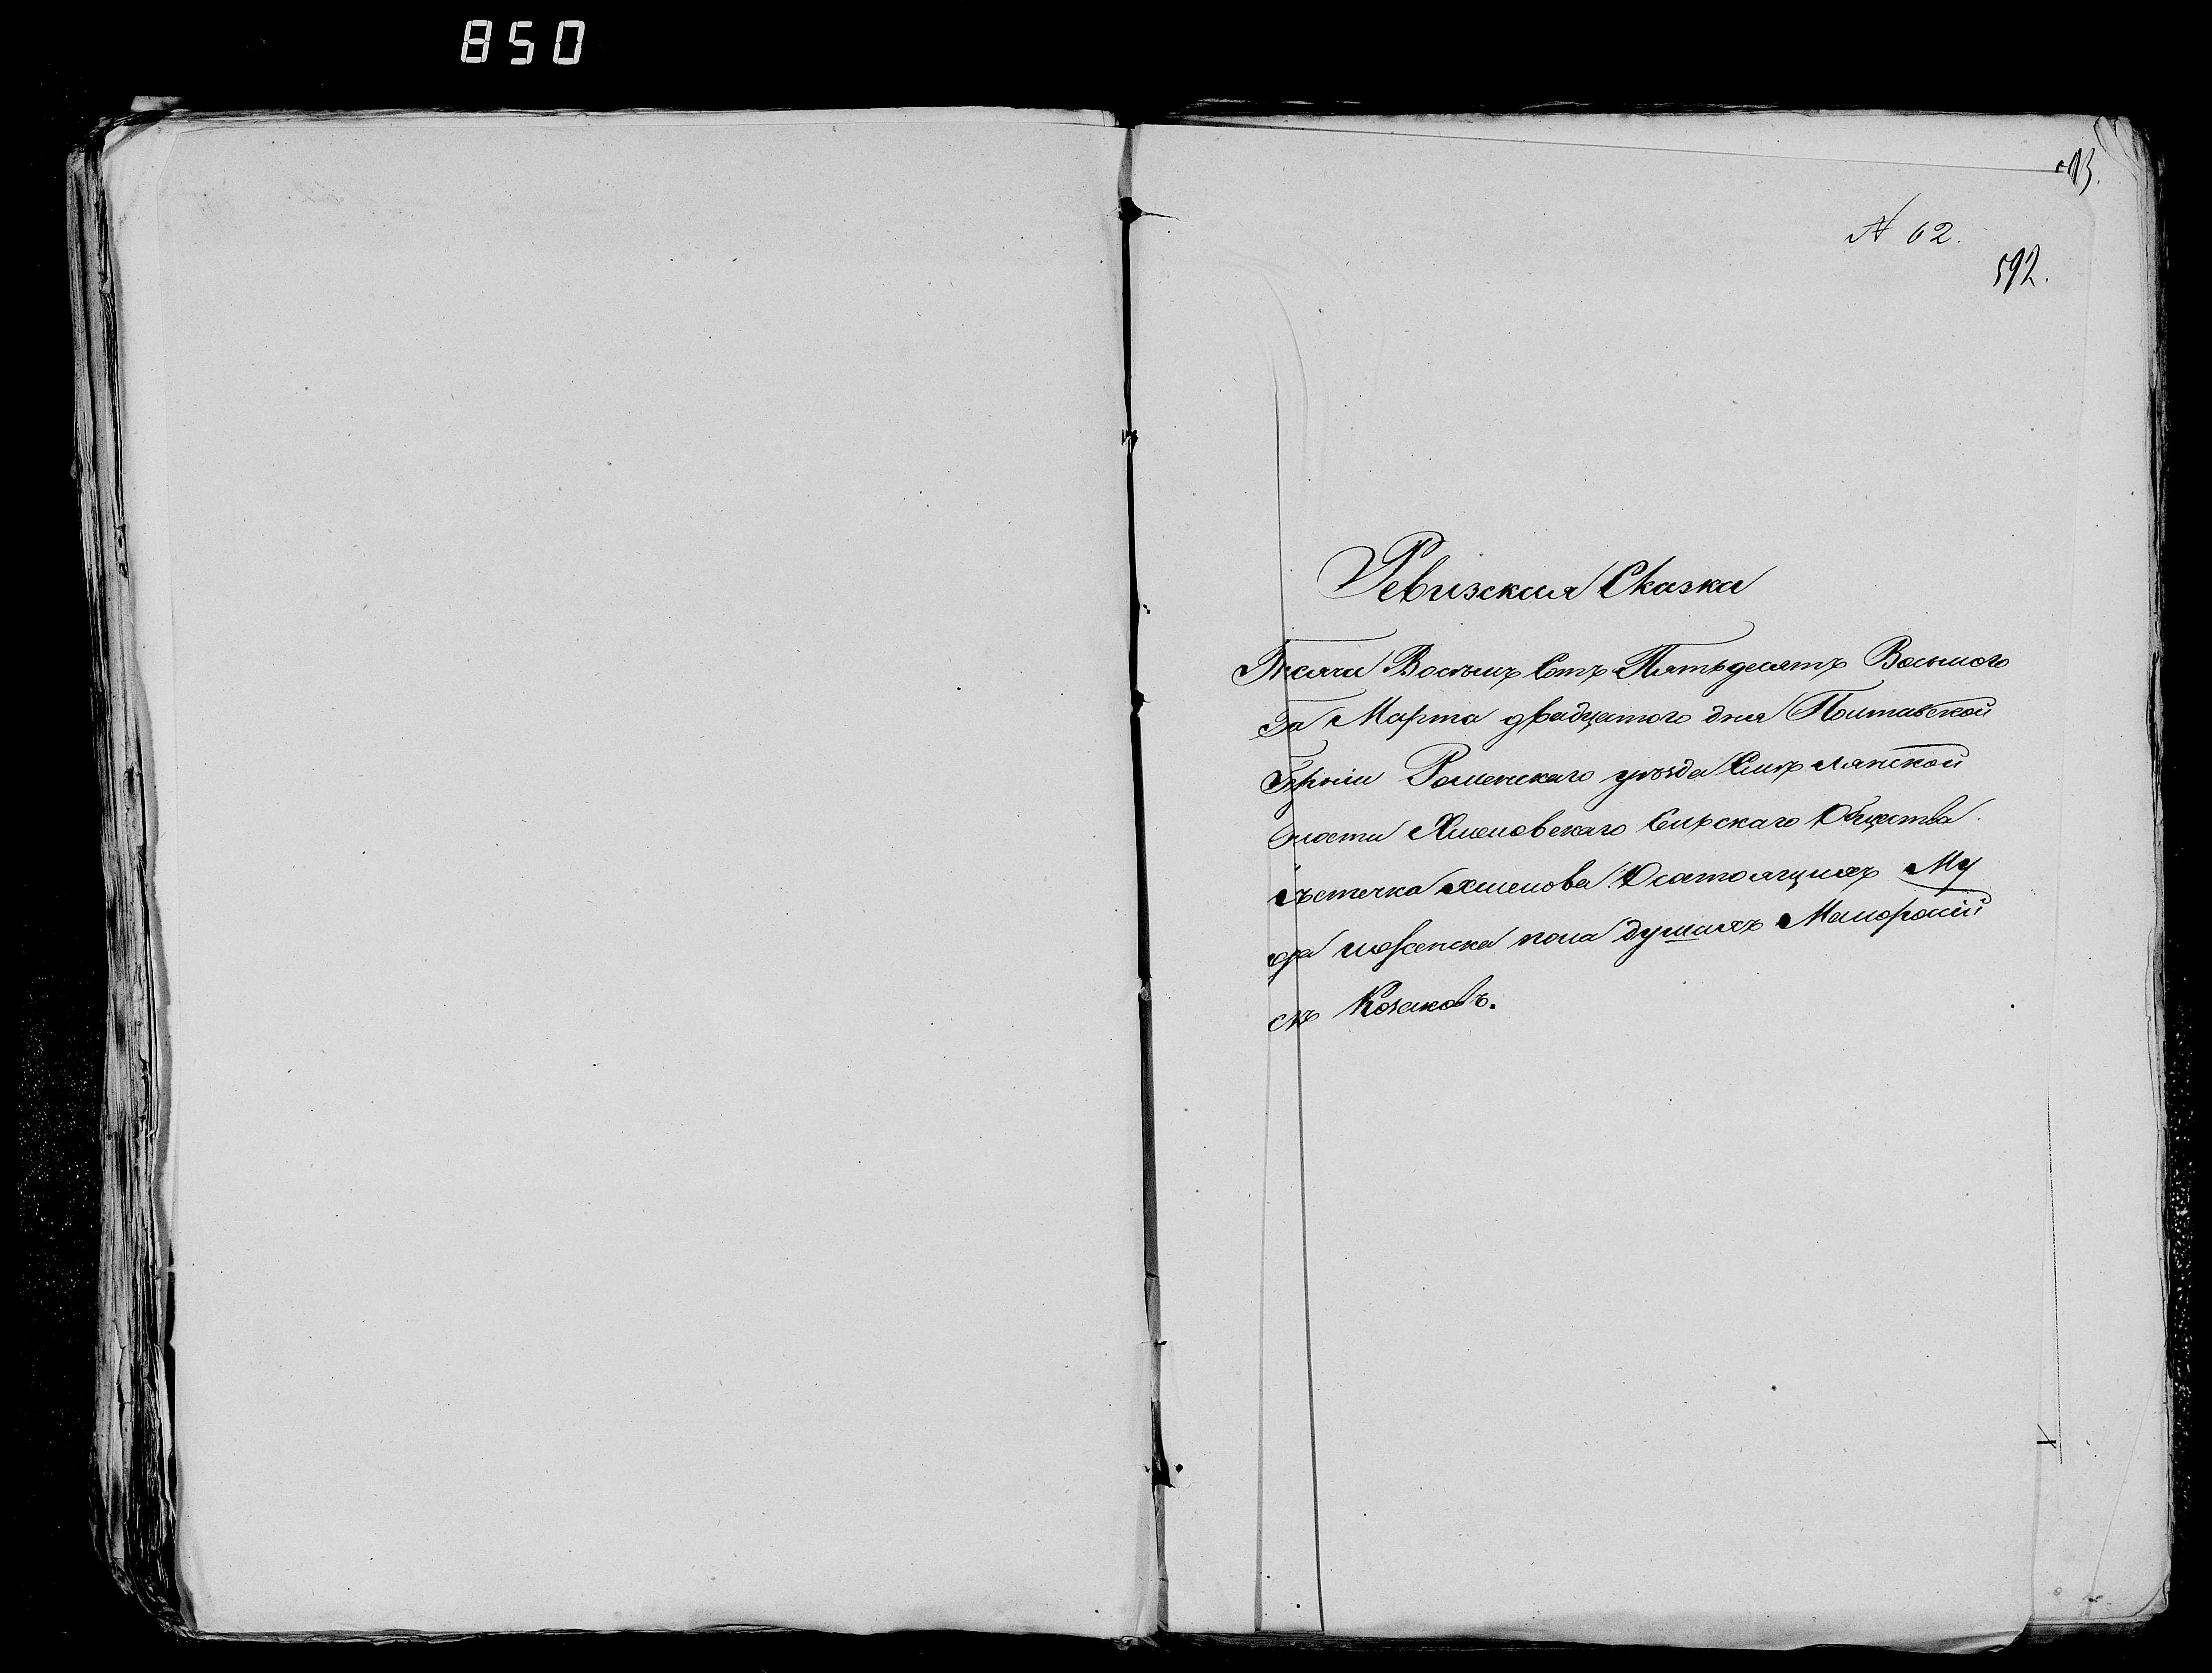 850
№ 62.
592.
Ревизская Сказка
Тысяча Восемь Сотъ Пятьдесятъ Восьмого
Го Марта двадцатого дня Полтавской
Губрніи Роменскаго уѣзда Смѣлянской
лости Хмеловскаго Сельскаго Общества
ѣстечка Хмелова О состоящихъ Му
ка и женска пола душахъ Малоросій
скъ Козаковъ.